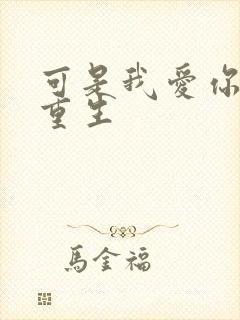 可是我愛你
重生
馬金福